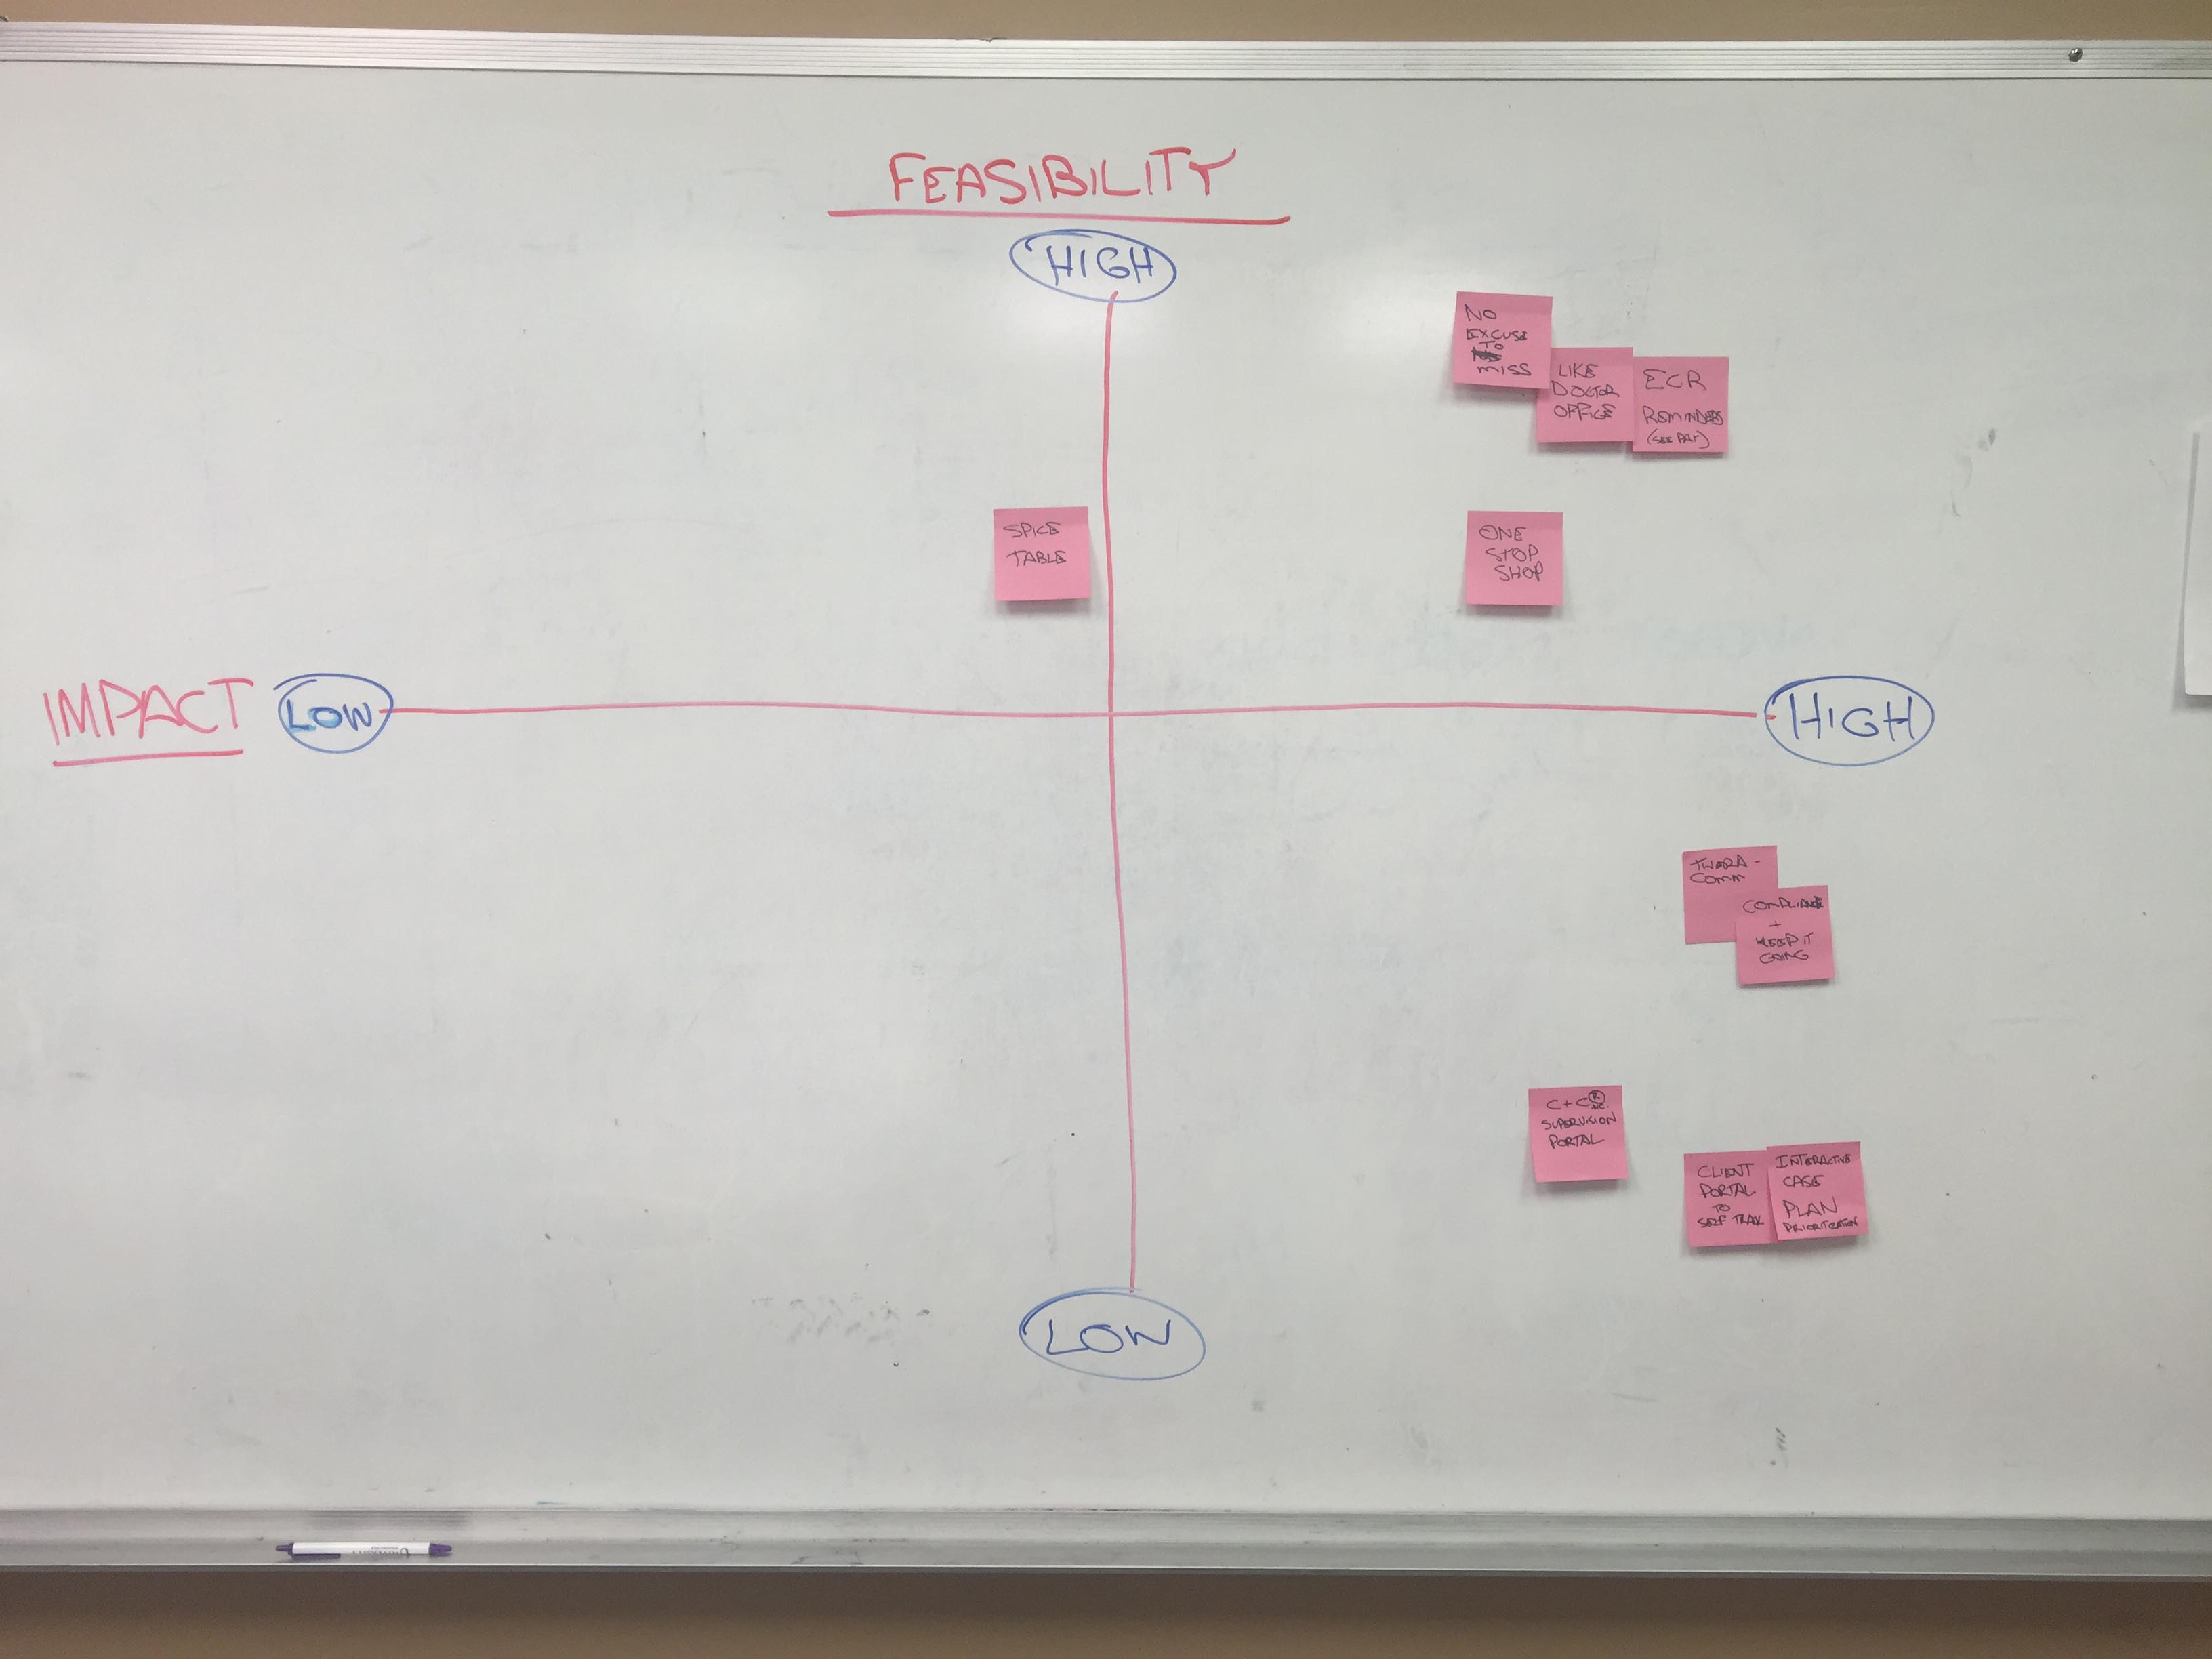 FEASIBILITY
HIGH
NO
EXCUSE
TO
MISS
LIKE
DOCTOR
OFFICE
ECR
REMINDERS
SPICE
TABLE
ONE
STOP
SHOP
IMPACT
LOW
HIGH
COMM
COMPLIANCE
+
KEEP IT
GOING
C+C
SUPERVISION
PORTAL
CLIENT
PORTAL
TO
SELF TRACK
INTERACTIVE
CASE
PLAN
PRIORITIZATION
LOW